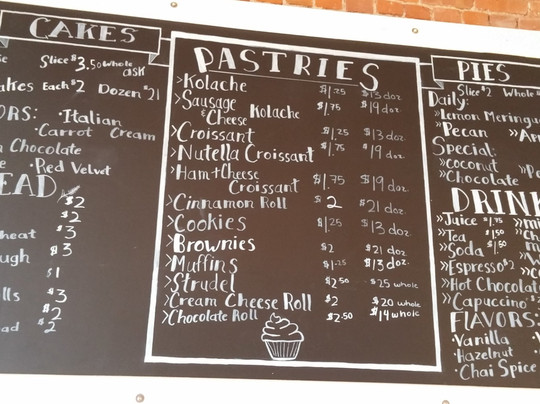 CAKES
Slice $3.50 whole
ask
akes Each $2 Dozen $21
ORS: ·Italian
·Carrot Cream
Chocolate
·Red Velvet
EAD
$2
$2
heat $3
ugh $3
$1
lls $3
$2
ad $2
PASTRIES
»Kolache $1.25 $13 doz.
»Sausage & Cheese Kolache $1.75 $19 doz.
»Croissant $1.25 $13 doz.
»Nutella Croissant $1.75 $19 doz.
»Ham+Cheese Croissant $1.75 $19 doz.
»Cinnamon Roll $2 $21 doz.
»Cookies $1.25 $13 doz.
»Brownies $2 $21 doz.
»Muffins $1.25 $13 doz.
»Strudel $2.50 $25 whole
»Cream Cheese Roll $2 $20 whole
»Chocolate Roll $2.50 $14 whole
PIES
Slice $2 Whole
Daily:
»Lemon Meringu
»Pecan
Special:
»coconut
»Chocolate
DRINK
»Juice $1.75
»Tea $1.50
»Soda $1.50
»Espresso $2
»Hot Chocolat
»Capuccino
FLAVORS:
·Vanilla
·Hazelnut
·Chai Spice